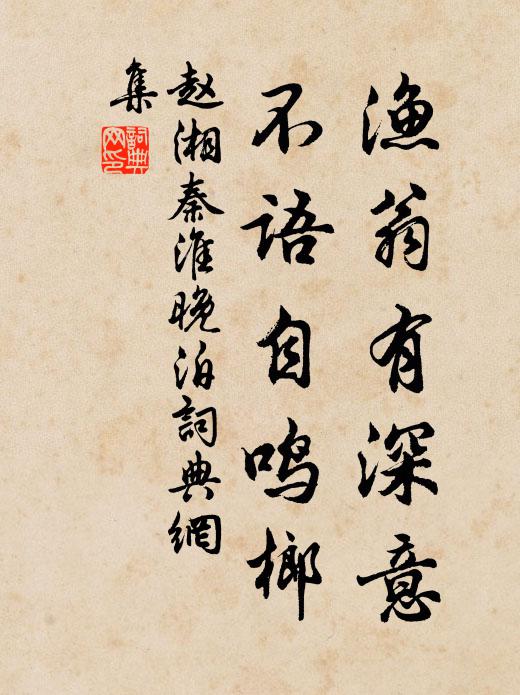 渔翁有深意
不语自鸣榔
赵湘秦淮晚泊詞典網
集
詞典网印